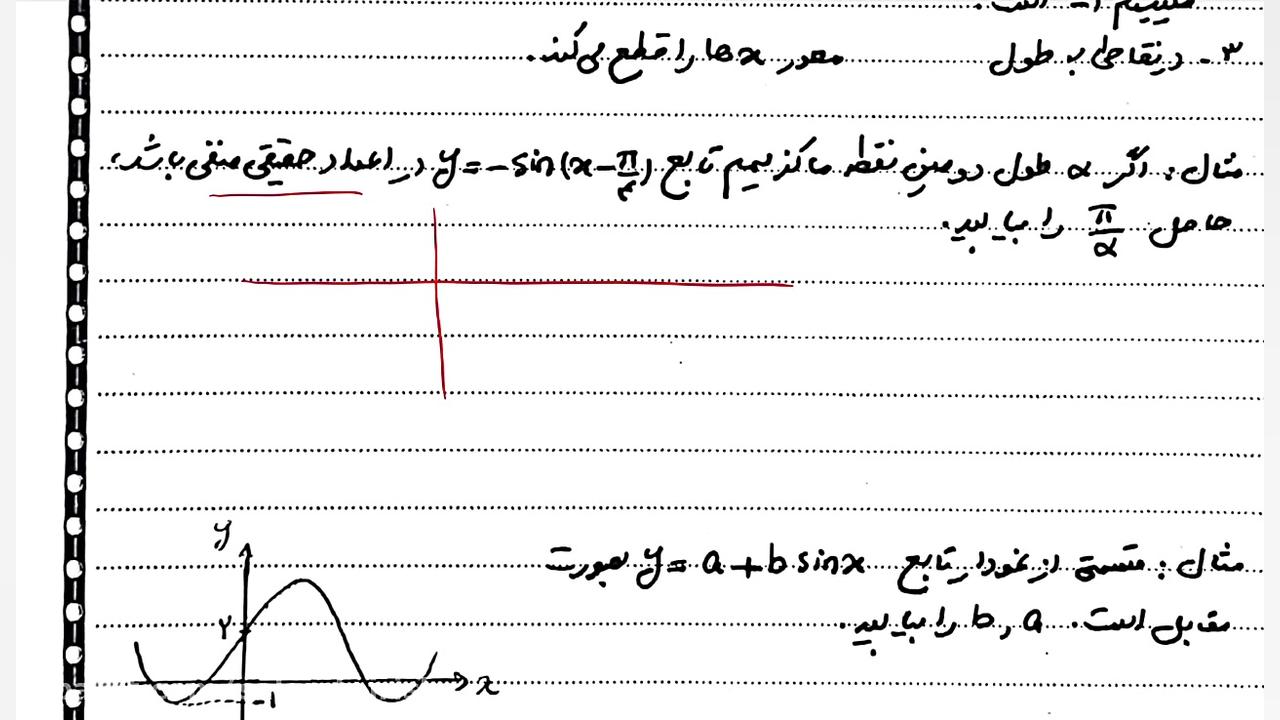 ۳ - در نقاطی به طول محور x ها را قطع می‌کند.
مثال: اگر α طول دومین نقطه ماکزیمم تابع y = -sin(x - π/۴) در اعداد حقیقی منفی باشد،
حاصل π/α را بیابید.
مثال: قسمتی از نمودار تابع y = a + b sin x بصورت
مقابل است. a و b را بیابید.
y
۲
x
-1